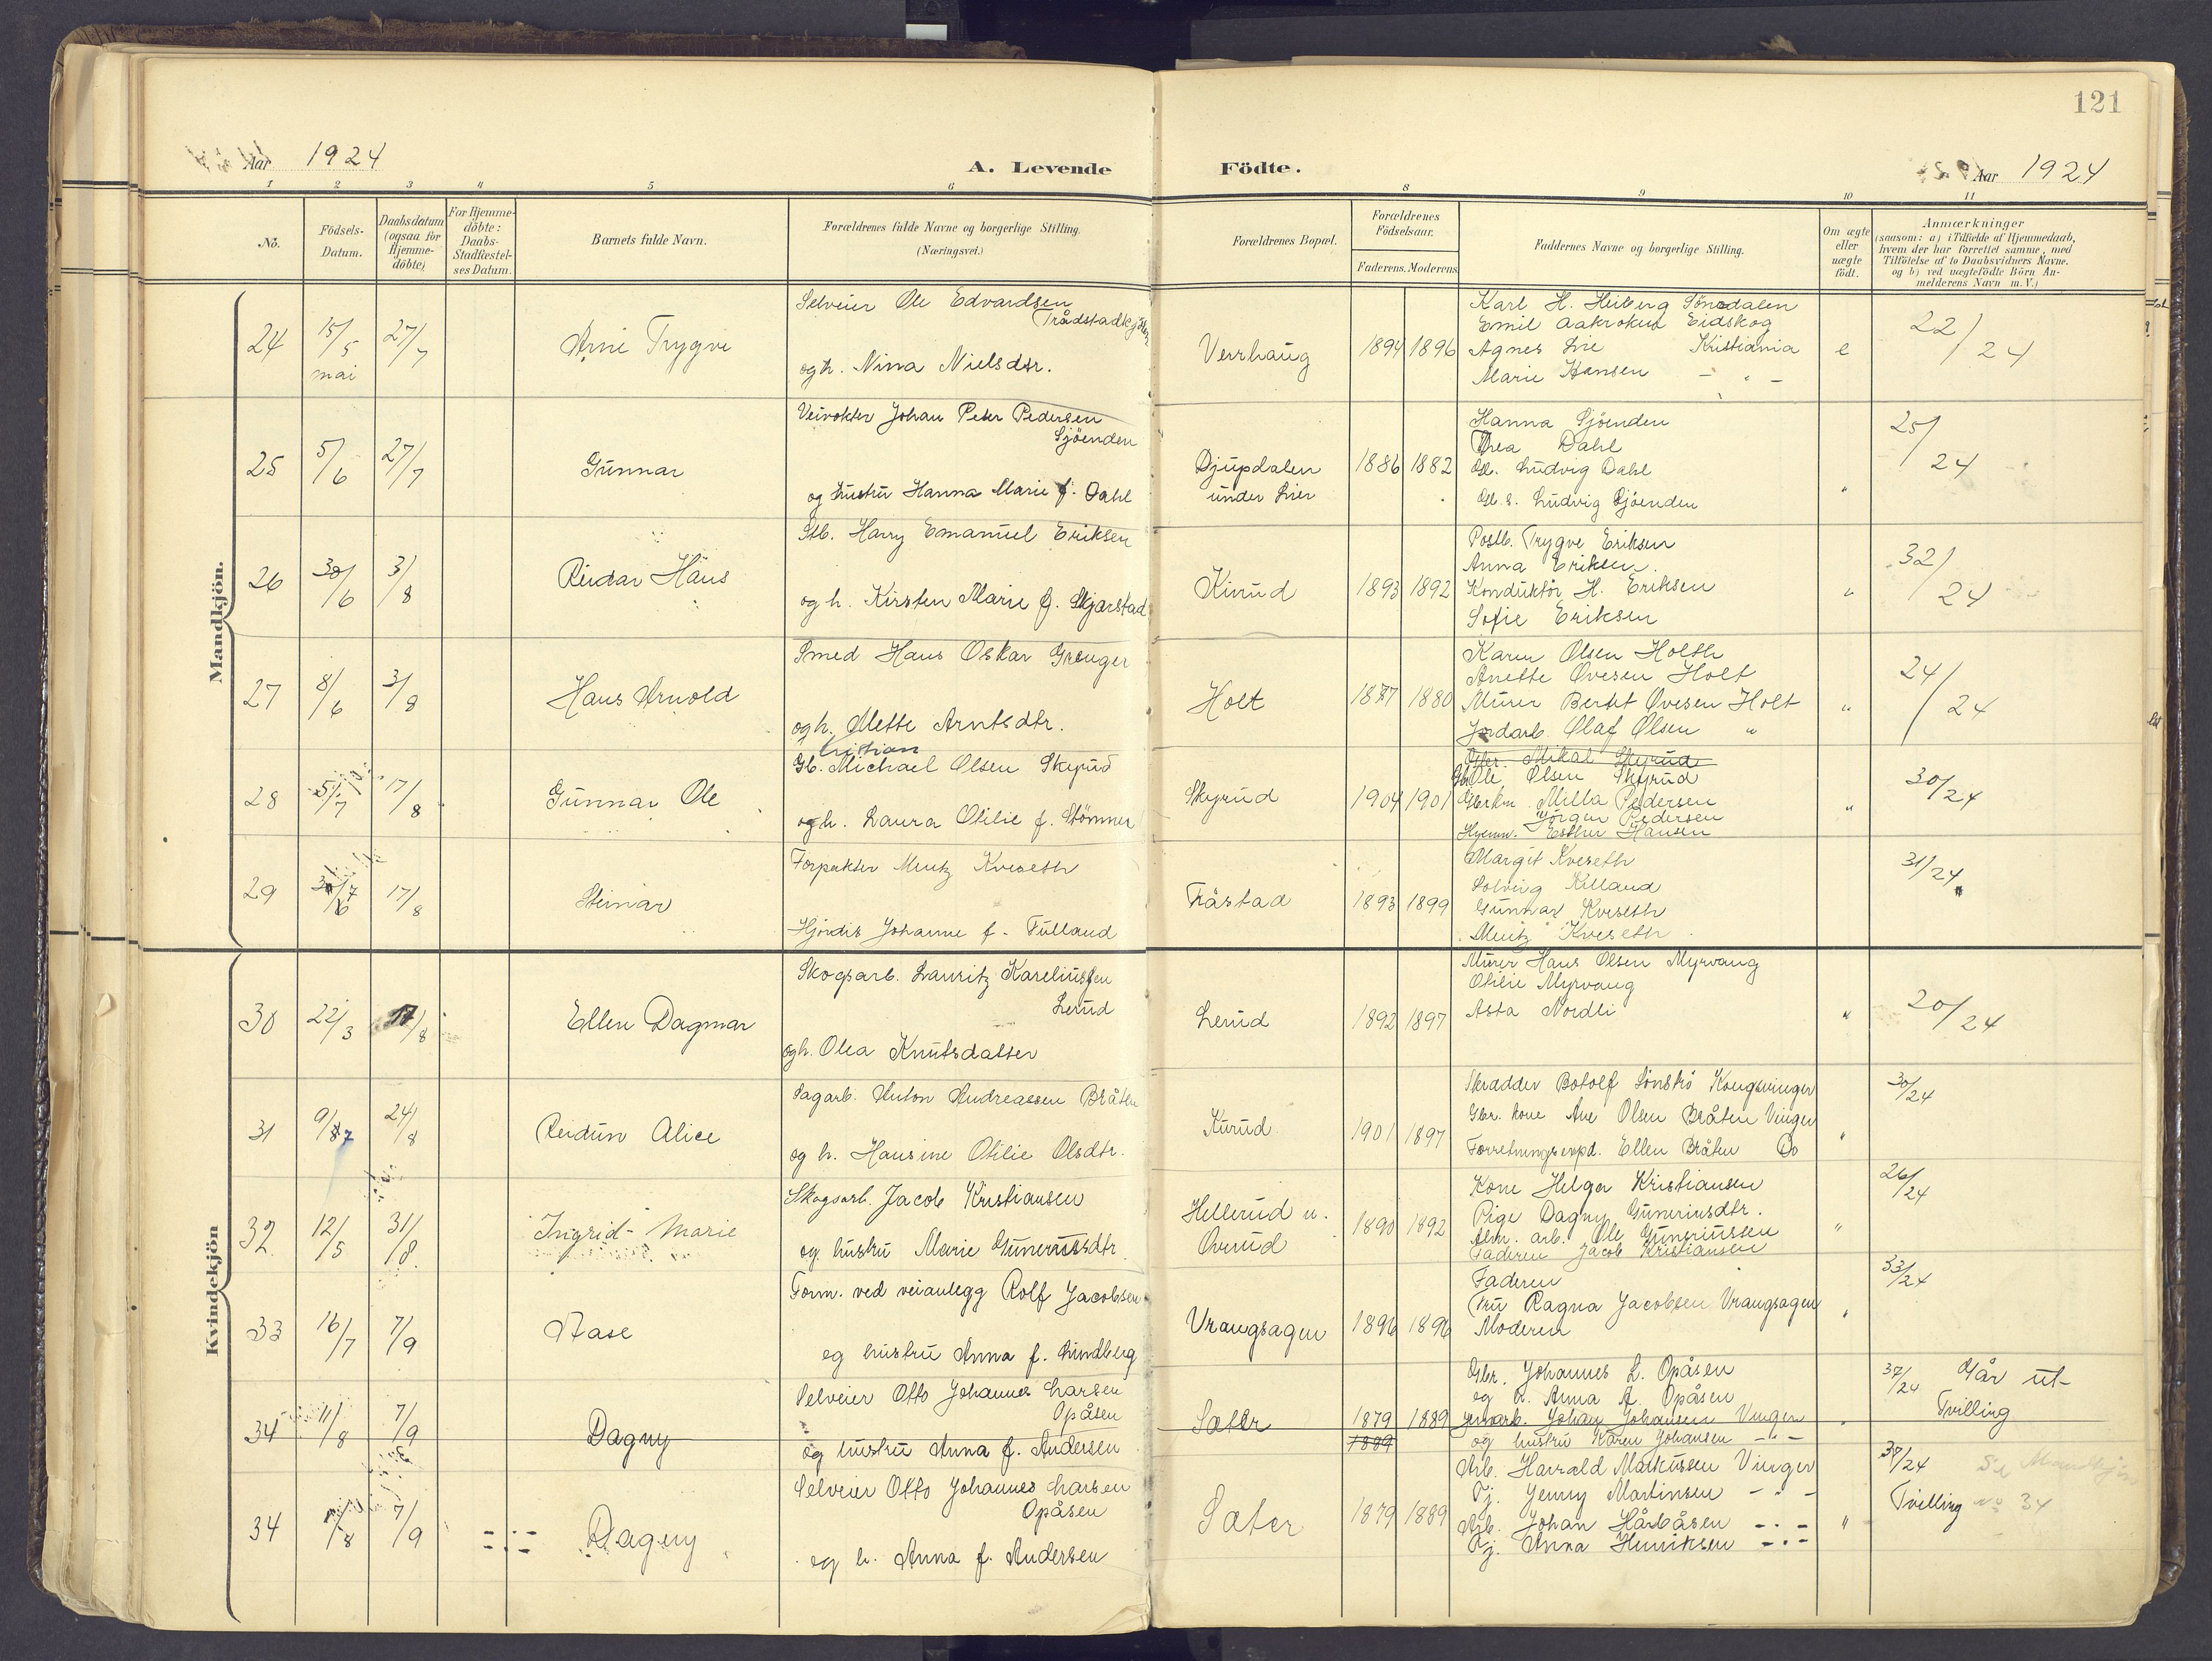 121
Aar 1924
A. Levende Födte.
Aar 1924
1 2 3 4 5 6 8 9 10 11
Nö.
Födsels-
Datum.
Daabsdatum
(ogsaa for
Hjemme-
döbte)
For Hjemme-
döbte:
Daabs-
Stadfæstel-
ses Datum.
Barnets fulde Navn.
Forældrenes fulde Navne og borgerlige Stilling.
(Næringsvei.)
Forældrenes Bopæl.
Forældrenes
Födselsaar.
Faderens. Moderens.
Faddernes Navne og borgerlige Stilling.
Om ægte
eller
uægte
födt.
Anmærkninger
(saasom: a) i Tilfælde af Hjemmedaab,
hvem der har forrettet samme, med
Tilföielse af to Daabsvidners Navne.
og b) ved uægtefödte Börn An-
melderens Navn m. V.)
Mandkjön.
24 15/5 mai 27/7
Arne Trygve
Selveier Ole Edvardsen
Trådstadkjölen
og h. Nina Nielsdtr.
Verrhaug
1894 1896
Karl H. Heiberg Sönsdalen
Emil Aakroken Eidskog
Agnes Lie Kristiania
Marie Hansen – " –
e
22/24
25 5/6 27/7
Gunnar
Veivokter Johan Peter Pedersen
Sjöenden
og hustru Hanna Marie f. Dahl
Djupdalen
under Lier
1886 1882
Hanna Sjöenden
Thea Dahl
Gb. Ludvig Dahl
Gb. s. Ludvig Sjöenden
"
25/24
26 30/6 3/8
Reidar Haus
Stb. Harry Emanuel Eriksen
og h. Kirsten Marie f. Skjarstad
Kirud
1893 1892
Postb. Trygve Eriksen
Anna Eriksen.
Konduktör H. Eriksen
Sofie Eriksen
"
32/24
27 8/6 3/8
Hans Arnold
Smed Hans Oskar Grenger
og h. Mette Arntsdtr.
Holt
1877 1880
Karen Olsen Holth
Anette Ovesen Holt
Murer Berht Ovesen Holt
Jndarb. Olaf Olsen "
"
24/24
28 5/7 17/8
Gunnar Ole
Kristian
Gb. Michael Olsen Skyrud
og h. Laura Otilie f. Stömner
Skyrud
1904 1901
Gbr. Mikal Skyrud
Gb. Ole Olsen Skyrud
Gbrkn. Milla Pedersen
Jörgen Pedersen
Hjemm. Esther Hansen
"
30/24
29 30/7 17/8
Steinar
Forpakter Mentz Kveseth
Hjördis Johanne f. Fulland
Fåstad
1893 1899
Margit Kveseth
Solveig Killand
Gunnar Kveseth
Mentz Kveseth
31/24
Kvindekjön
30 22/3 17/8
Ellen Dagmar
Skogsarb. Lauritz Kareliussen
Lerud
og h. Olea Knutsdatter
Lerud
1892 1897
Murer Hans Olsen Myrvang
Otilie Myrvang
Asta Nordli
"
20/24
31 9/7 24/8
Reidun Alice
Sagarb. Anton Andreassen Bråten
og h. Hansine Otilie Olsdtr.
Kurud
1901 1897
Skrædder Botolf Sönskö Kongsvinger
Gbr. kone Ane Olsen Bråten Vinger
Forretningsexpd. Ellen Bråten Do
"
30/24
32 12/5 31/8
Ingrid Marie
Skogsarb. Jacob Kristiansen
og hustru Marie Gunerusdtr.
Hellerud u.
Overud
1890 1892
Kone Helga Kristiansen
Pige Dagny Guneriusdtr.
Alm. arb. Ole Guneriussen
Faderen Jacob Kristiansen
"
26/24
33 16/7 7/9
Aase
Form. ved veianlegg Rolf Jacobsen
og hustru Anna f. Lindberg
Vrangsagen
1896 1896
Faderen
Fru Ragna Jacobsen Vrangsagen
Moderen
"
33/24
34 11/8 7/9
Dagny
Selveier Otto Johannes Larsen
Opåsen
og hustru Anna f. Andersen
Sæter
1879 1889
1889
Gbr. Johannes L. Opåsen
og h. Anna A. Opåsen
Jernarb. Johan Johansen Vinger
og hustru Karen Johansen – " –
"
37/24 Går ut
Tvilling
34 11/8 7/9
Dagny
Selveier Otto Johannes Larsen
Opåsen
og h. Anna f. Andersen
Sæter
1879 1889
Arb. Harald Markussen Vinger
Pj. Jenny Martinsen – " –
Arb. Johan Hårbåsen – " –
Pj. Anna Henriksen – " –
"
37/24 Se Mandkjön
Tvilling No 34